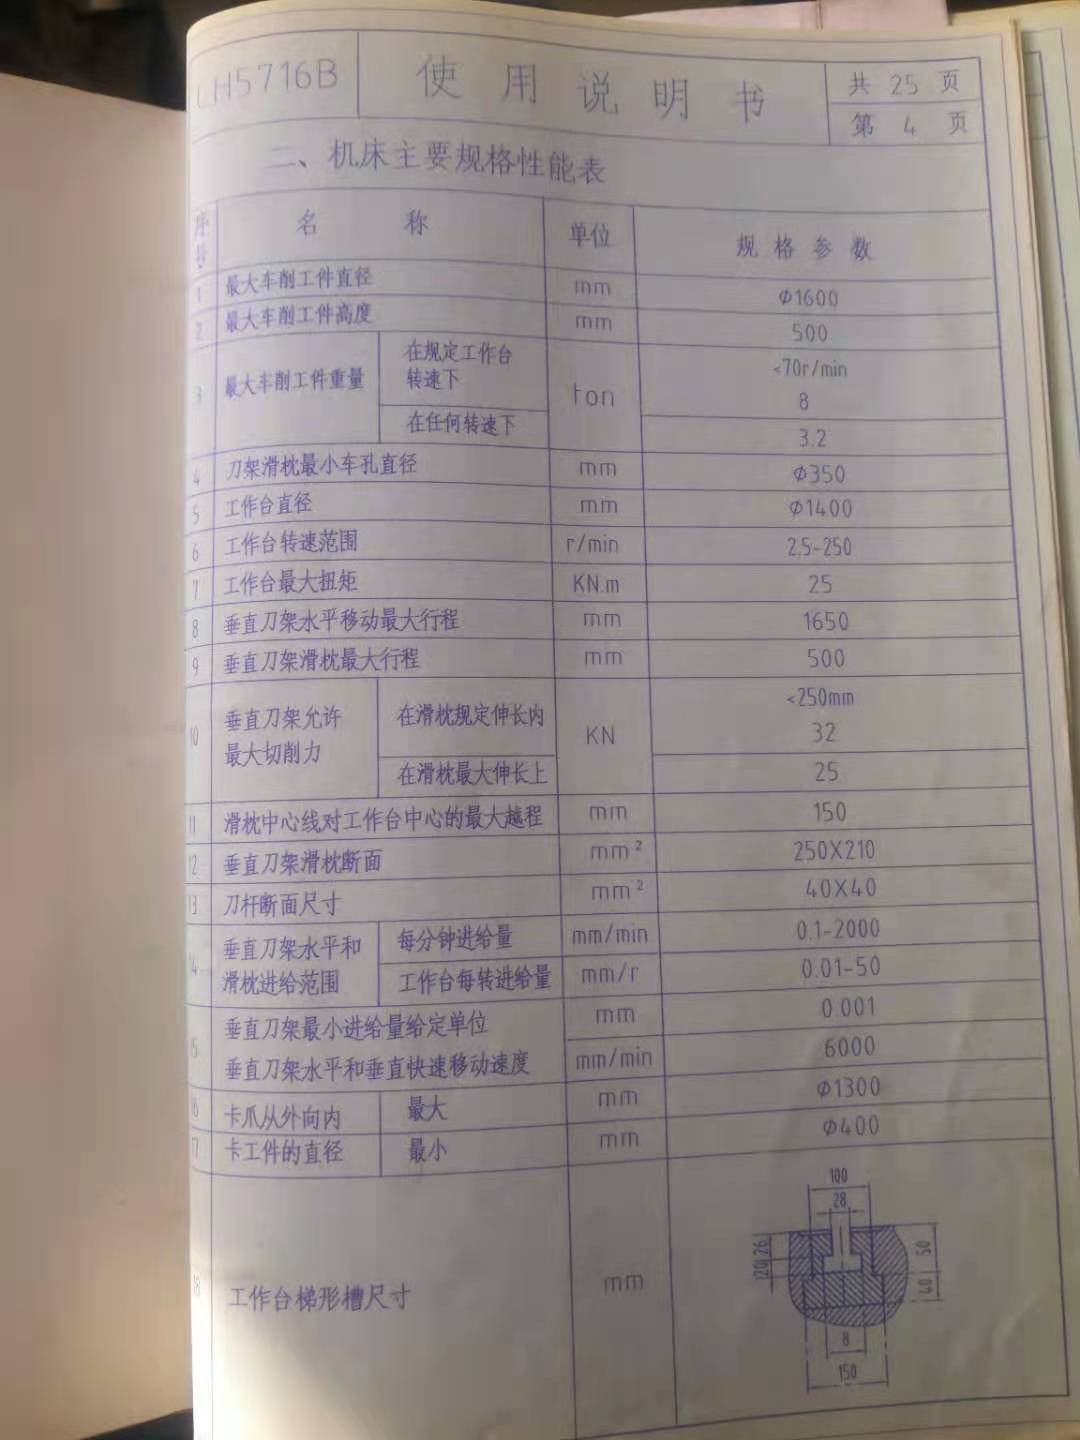 CH5716B
使用说明书
共 25 页
第 4 页
二、机床主要规格性能表
序号 名称 单位 规格参数
1 最大车削工件直径 mm Φ1600
2 最大车削工件高度 mm 500
3 最大车削工件重量 在规定工作台转速下 ton <70r/min 8
在任何转速下 3.2
4 刀架滑枕最小车孔直径 mm Φ350
5 工作台直径 mm Φ1400
6 工作台转速范围 r/min 2.5-250
7 工作台最大扭矩 KN.m 25
8 垂直刀架水平移动最大行程 mm 1650
9 垂直刀架滑枕最大行程 mm 500
10 垂直刀架允许最大切削力 在滑枕规定伸长内 KN <250mm 32
在滑枕最大伸长上 25
11 滑枕中心线对工作台中心的最大越程 mm 150
12 垂直刀架滑枕断面 mm² 250X210
13 刀杆断面尺寸 mm² 40X40
14 垂直刀架水平和滑枕进给范围 每分钟进给量 mm/min 0.1-2000
工作台每转进给量 mm/r 0.01-50
15 垂直刀架最小进给量给定单位 mm 0.001
垂直刀架水平和垂直快速移动速度 mm/min 6000
16 卡爪从外向内 最大 mm Φ1300
17 卡工件的直径 最小 mm Φ400
18 工作台梯形槽尺寸 mm
100
28
26
20
50
40
8
150